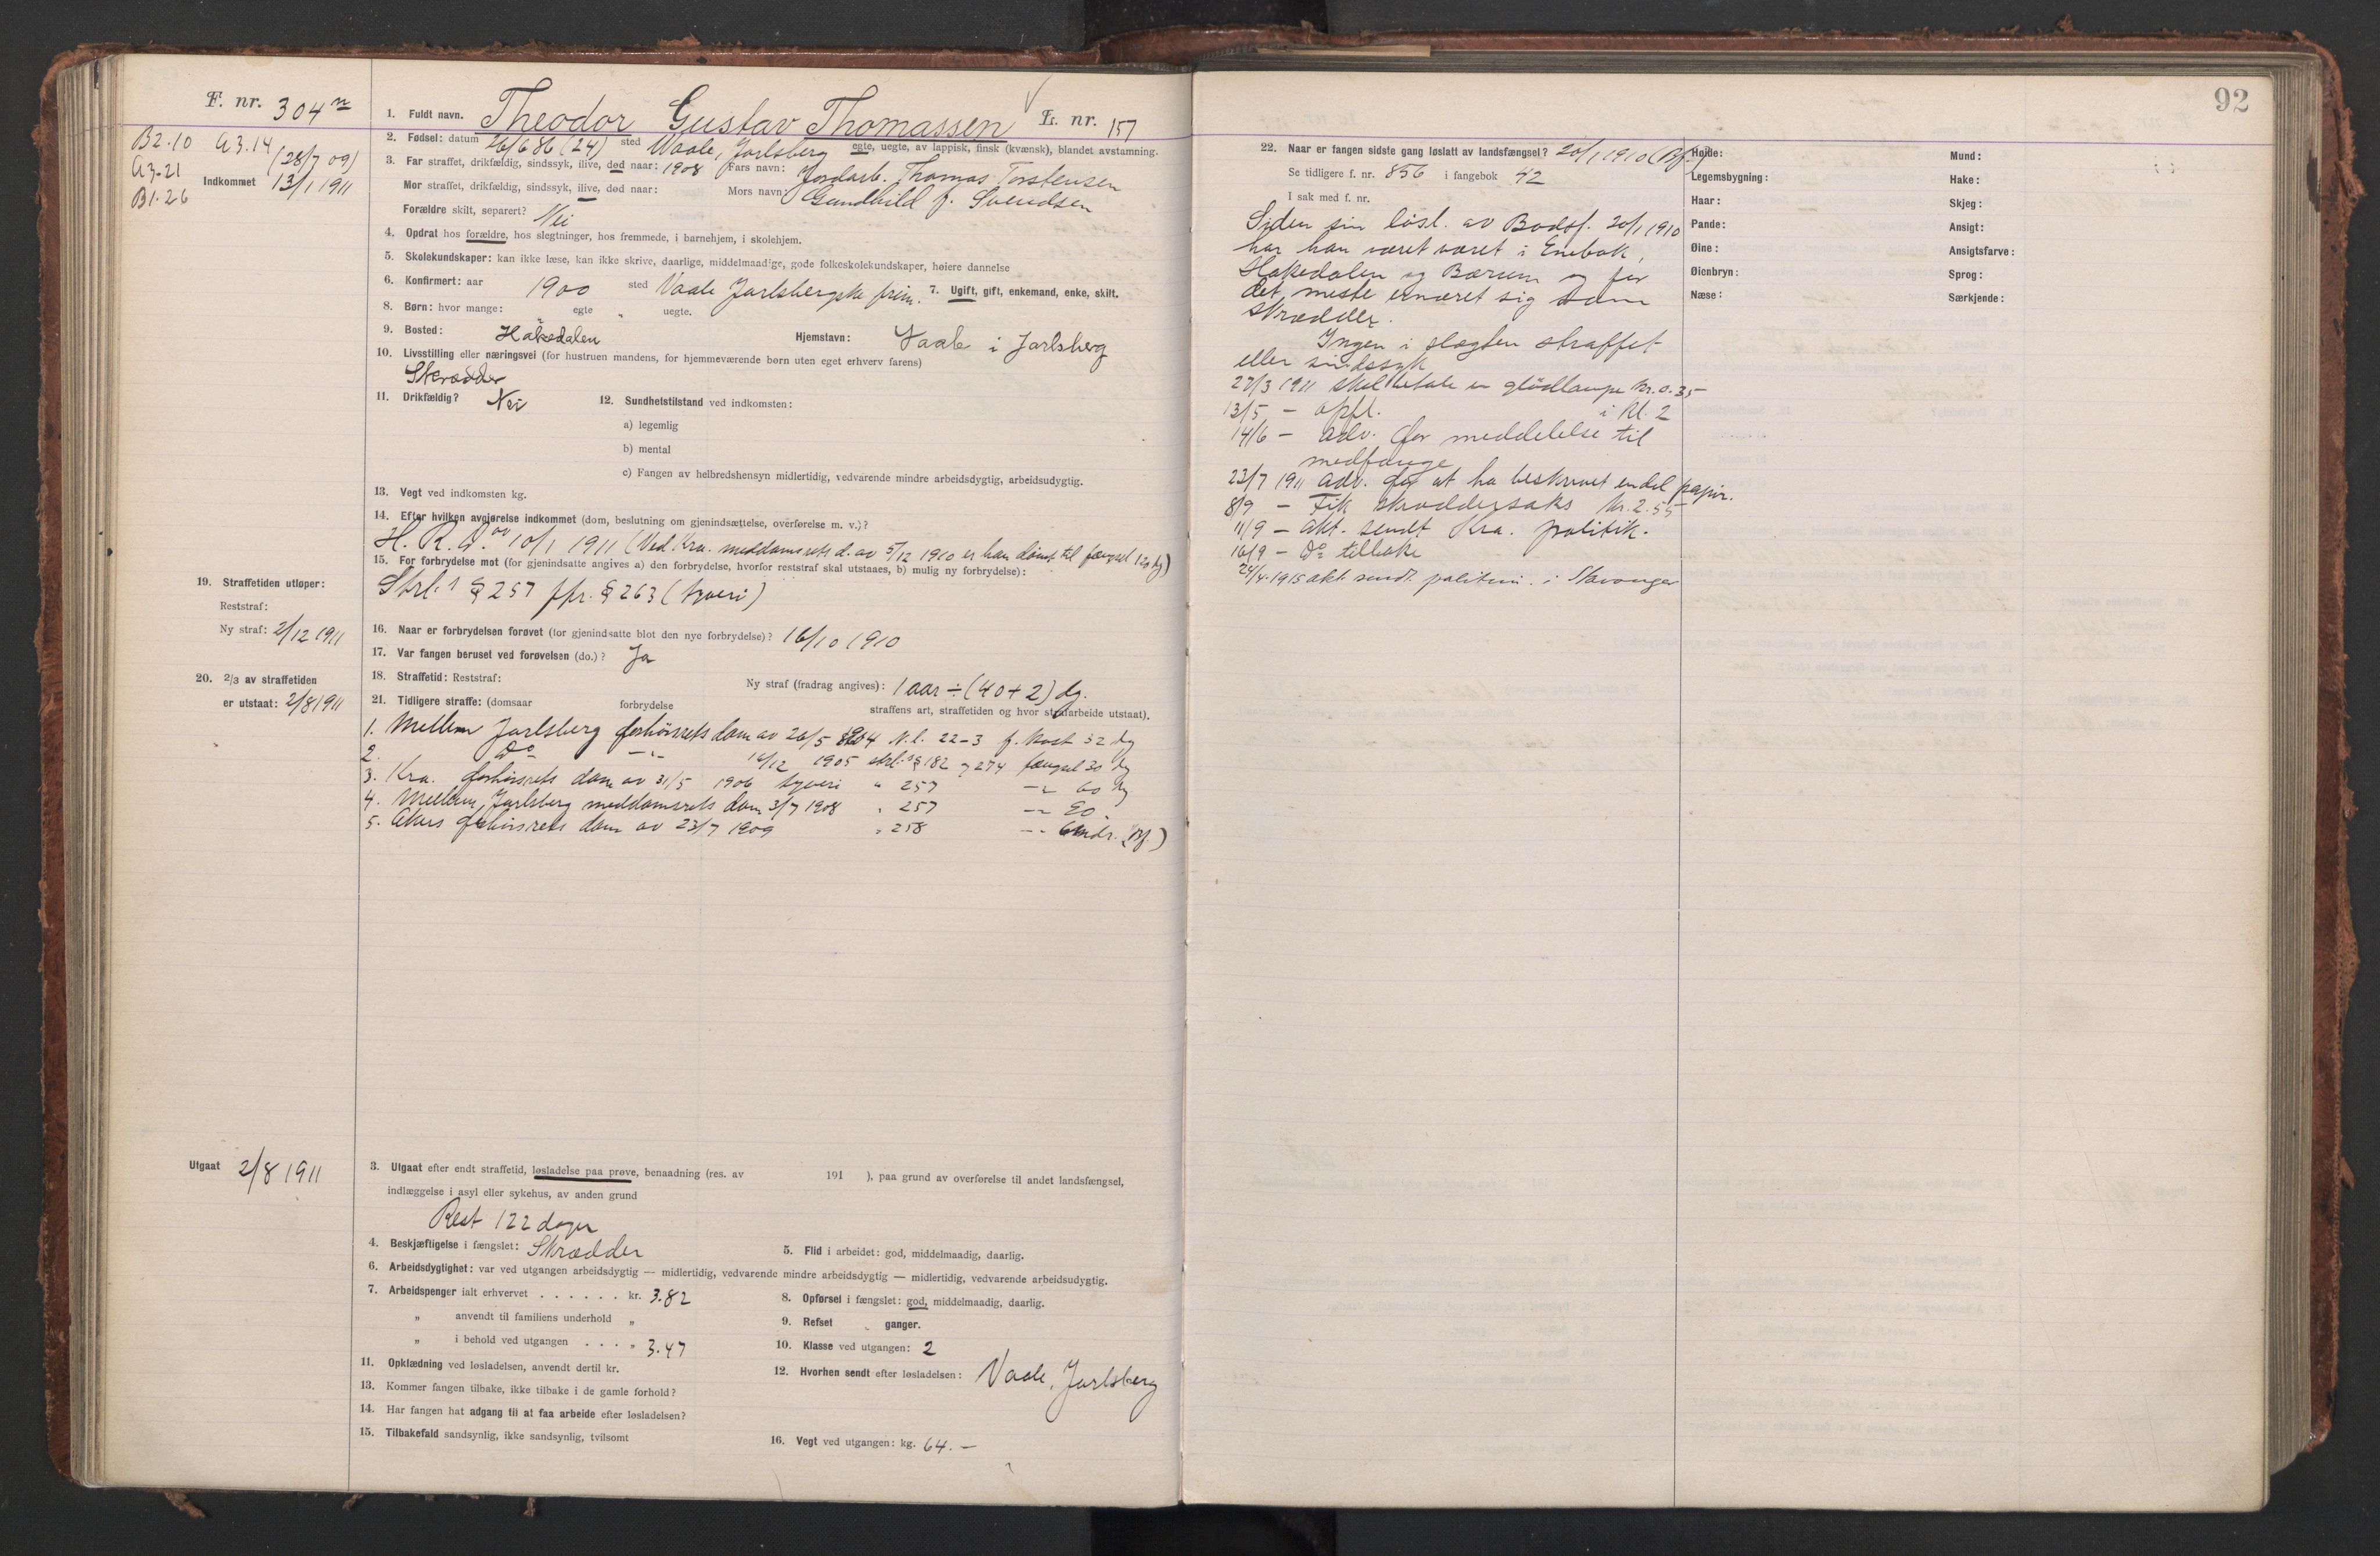 F. nr. 304
B2.10 A3.14
A3-21 (28/7 09)
B1.26 Indkommet 13/1 1911
1. Fuldt navn. Theodor Gustav Thomassen L. nr. 157
2. Fødsel: datum 26/6 86 (24) sted Waale, Jarlsberg egte, uegte, av lappisk, finsk (kvænsk), blandet avstamning.
3. Far straffet, drikfældig, sindssyk, ilive, død naar: 1908 Fars navn: Jordarb. Thomas Torstensen
Mor straffet, drikfældig, sindssyk, ilive, død naar: Mors navn: Gundhild f. Svendsen
Forældre skilt, separert? Nei
4. Opdrat hos forældre, hos slegtninger, hos fremmede, i barnehjem, i skolehjem.
5. Skolekundskaper: kan ikke læse, kan ikke skrive, daarlige, middelmaadige, gode folkeskolekundskaper, høiere dannelse
6. Konfirmert: aar 1900 sted Vaale Jarlsbergske prim. 7. Ugift, gift, enkemand, enke, skilt.
8. Børn: hvor mange: egte " uegte.
9. Bosted: Hakedalen Hjemstavn: Vaale i Jarlsberg
10. Livsstilling eller næringsvei (for hustruen mandens, for hjemmeværende børn uten eget erhverv farens)
Skrædder
11. Drikfældig? Nei 12. Sundhetstilstand ved indkomsten:
a) legemlig
b) mental
c) Fangen av helbredshensyn midlertidig, vedvarende mindre arbeidsdygtig, arbeidsudygtig.
13. Vegt ved indkomsten kg.
14. Efter hvilken avgjørelse indkommet (dom, beslutning om gjenindsættelse, overførelse m. v.)?
H. R. D. av 10/1 1911 (Ved Kra. meddomsrets d. av 5/12 1910 er han dømt til fængsel 120 dg)
15. For forbrydelse mot (for gjenindsatte angives a) den forbrydelse, hvorfor reststraf skal utstaaes, b) mulig ny forbrydelse):
Strl. § 257 jfr. § 263 (tyveri)
19. Straffetiden utløper:
Reststraf:
Ny straf: 2/12 1911
16. Naar er forbrydelsen forøvet (for gjenindsatte blot den nye forbrydelse)? 16/10 1910
17. Var fangen beruset ved forøvelsen (do.)? Ja
20. 2/3 av straffetiden
er utstaat: 2/8 1911
18. Straffetid: Reststraf: Ny straf (fradrag angives): 1 aar ÷ (40+2) dg.
21. Tidligere straffe: (domsaar forbrydelse straffens art, straffetiden og hvor strafarbeide utstaat).
1. Mellem Jarlsberg forhörsrets dom av 26/5 1904 K.l. 22-3 f. kost 32 dg
2. Do -"- 14/12 1905 strl. § 182 og 274 fængsel 30 dg
3. Kra. forhörsrets dom av 31/5 1906 tyveri " 257 -"- 60 dg
4. Mellem Jarlsberg meddomsrets dom 3/7 1908 " 257 -"- 90 "
5. Akers forhörsrets dom av 23/7 1909 " 258 -"- 6 mdr. (Bf.)
Utgaat 2/8 1911
3. Utgaat efter endt straffetid, løsladelse paa prøve, benaadning (res. av 191 ), paa grund av overførelse til andet landsfængsel,
indlæggelse i asyl eller sykehus, av anden grund
Rest 122 dager
4. Beskjæftigelse i fængslet: Skrædder 5. Flid i arbeidet: god, middelmaadig, daarlig.
6. Arbeidsdygtighet: var ved utgangen arbeidsdygtig — midlertidig, vedvarende mindre arbeidsdygtig — midlertidig, vedvarende arbeidsudygtig.
7. Arbeidspenger ialt erhvervet . . . . . . kr. 3.82 8. Opførsel i fængslet: god, middelmaadig, daarlig.
" anvendt til familiens underhold " 9. Refset " ganger.
" i behold ved utgangen . . . . " 3.47 10. Klasse ved utgangen: 2
11. Opklædning ved løsladelsen, anvendt dertil kr. 12. Hvorhen sendt efter løsladelsen: Vaale, Jarlsberg
13. Kommer fangen tilbake, ikke tilbake i de gamle forhold?
14. Har fangen hat adgang til at faa arbeide efter løsladelsen?
15. Tilbakefald sandsynlig, ikke sandsynlig, tvilsomt 16. Vegt ved utgangen: kg. 64.-
92
22. Naar er fangen sidste gang løslatt av landsfængsel? 20/1 1910 (Bf.)
Se tidligere f. nr. 856 i fangebok 42
I sak med f. nr.
Siden sin lösl. av Bodsf. 20/1 1910
har han været været i Enebak,
Hakedalen og Bærum og for
det meste ernæret sig som
skrædder.
Ingen i slægten straffet
eller sindssyk
27/3 1911 skal betale en glödlampe kr. 0.35
13/5 - opfl. i kl. 2
14/6 - adv. for meddelelse til
medfange
23/7 1911 adv. for at ha beskrevet endel papir.
8/9 - Fik skræddersaks kr. 2.55
11/9 - akt. sendt Kra. politik.
16/9 - Do tilbake
24/4-1915 akt sendt politim. i Stavanger
Høide: Mund:
Legemsbygning: Hake:
Haar: Skjeg:
Pande: Ansigt:
Øine: Ansigtsfarve:
Øienbryn: Sprog:
Næse: Særkjende: